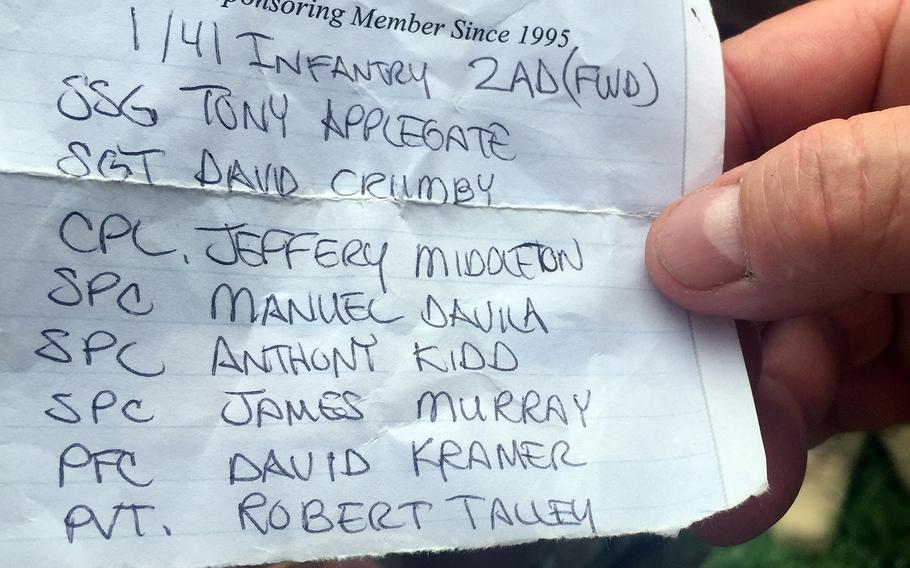 ponsoring Member Since 1995
1/41 INFANTRY 2AD(FWD)
SSG TONY APPLEGATE
SGT DAVID CRUMBY
CPL. JEFFERY MIDDLETON
SPC MANUEL DAVILA
SPC ANTHONY KIDD
SPC JAMES MURRAY
PFC DAVID KRAMER
PVT. ROBERT TALLEY